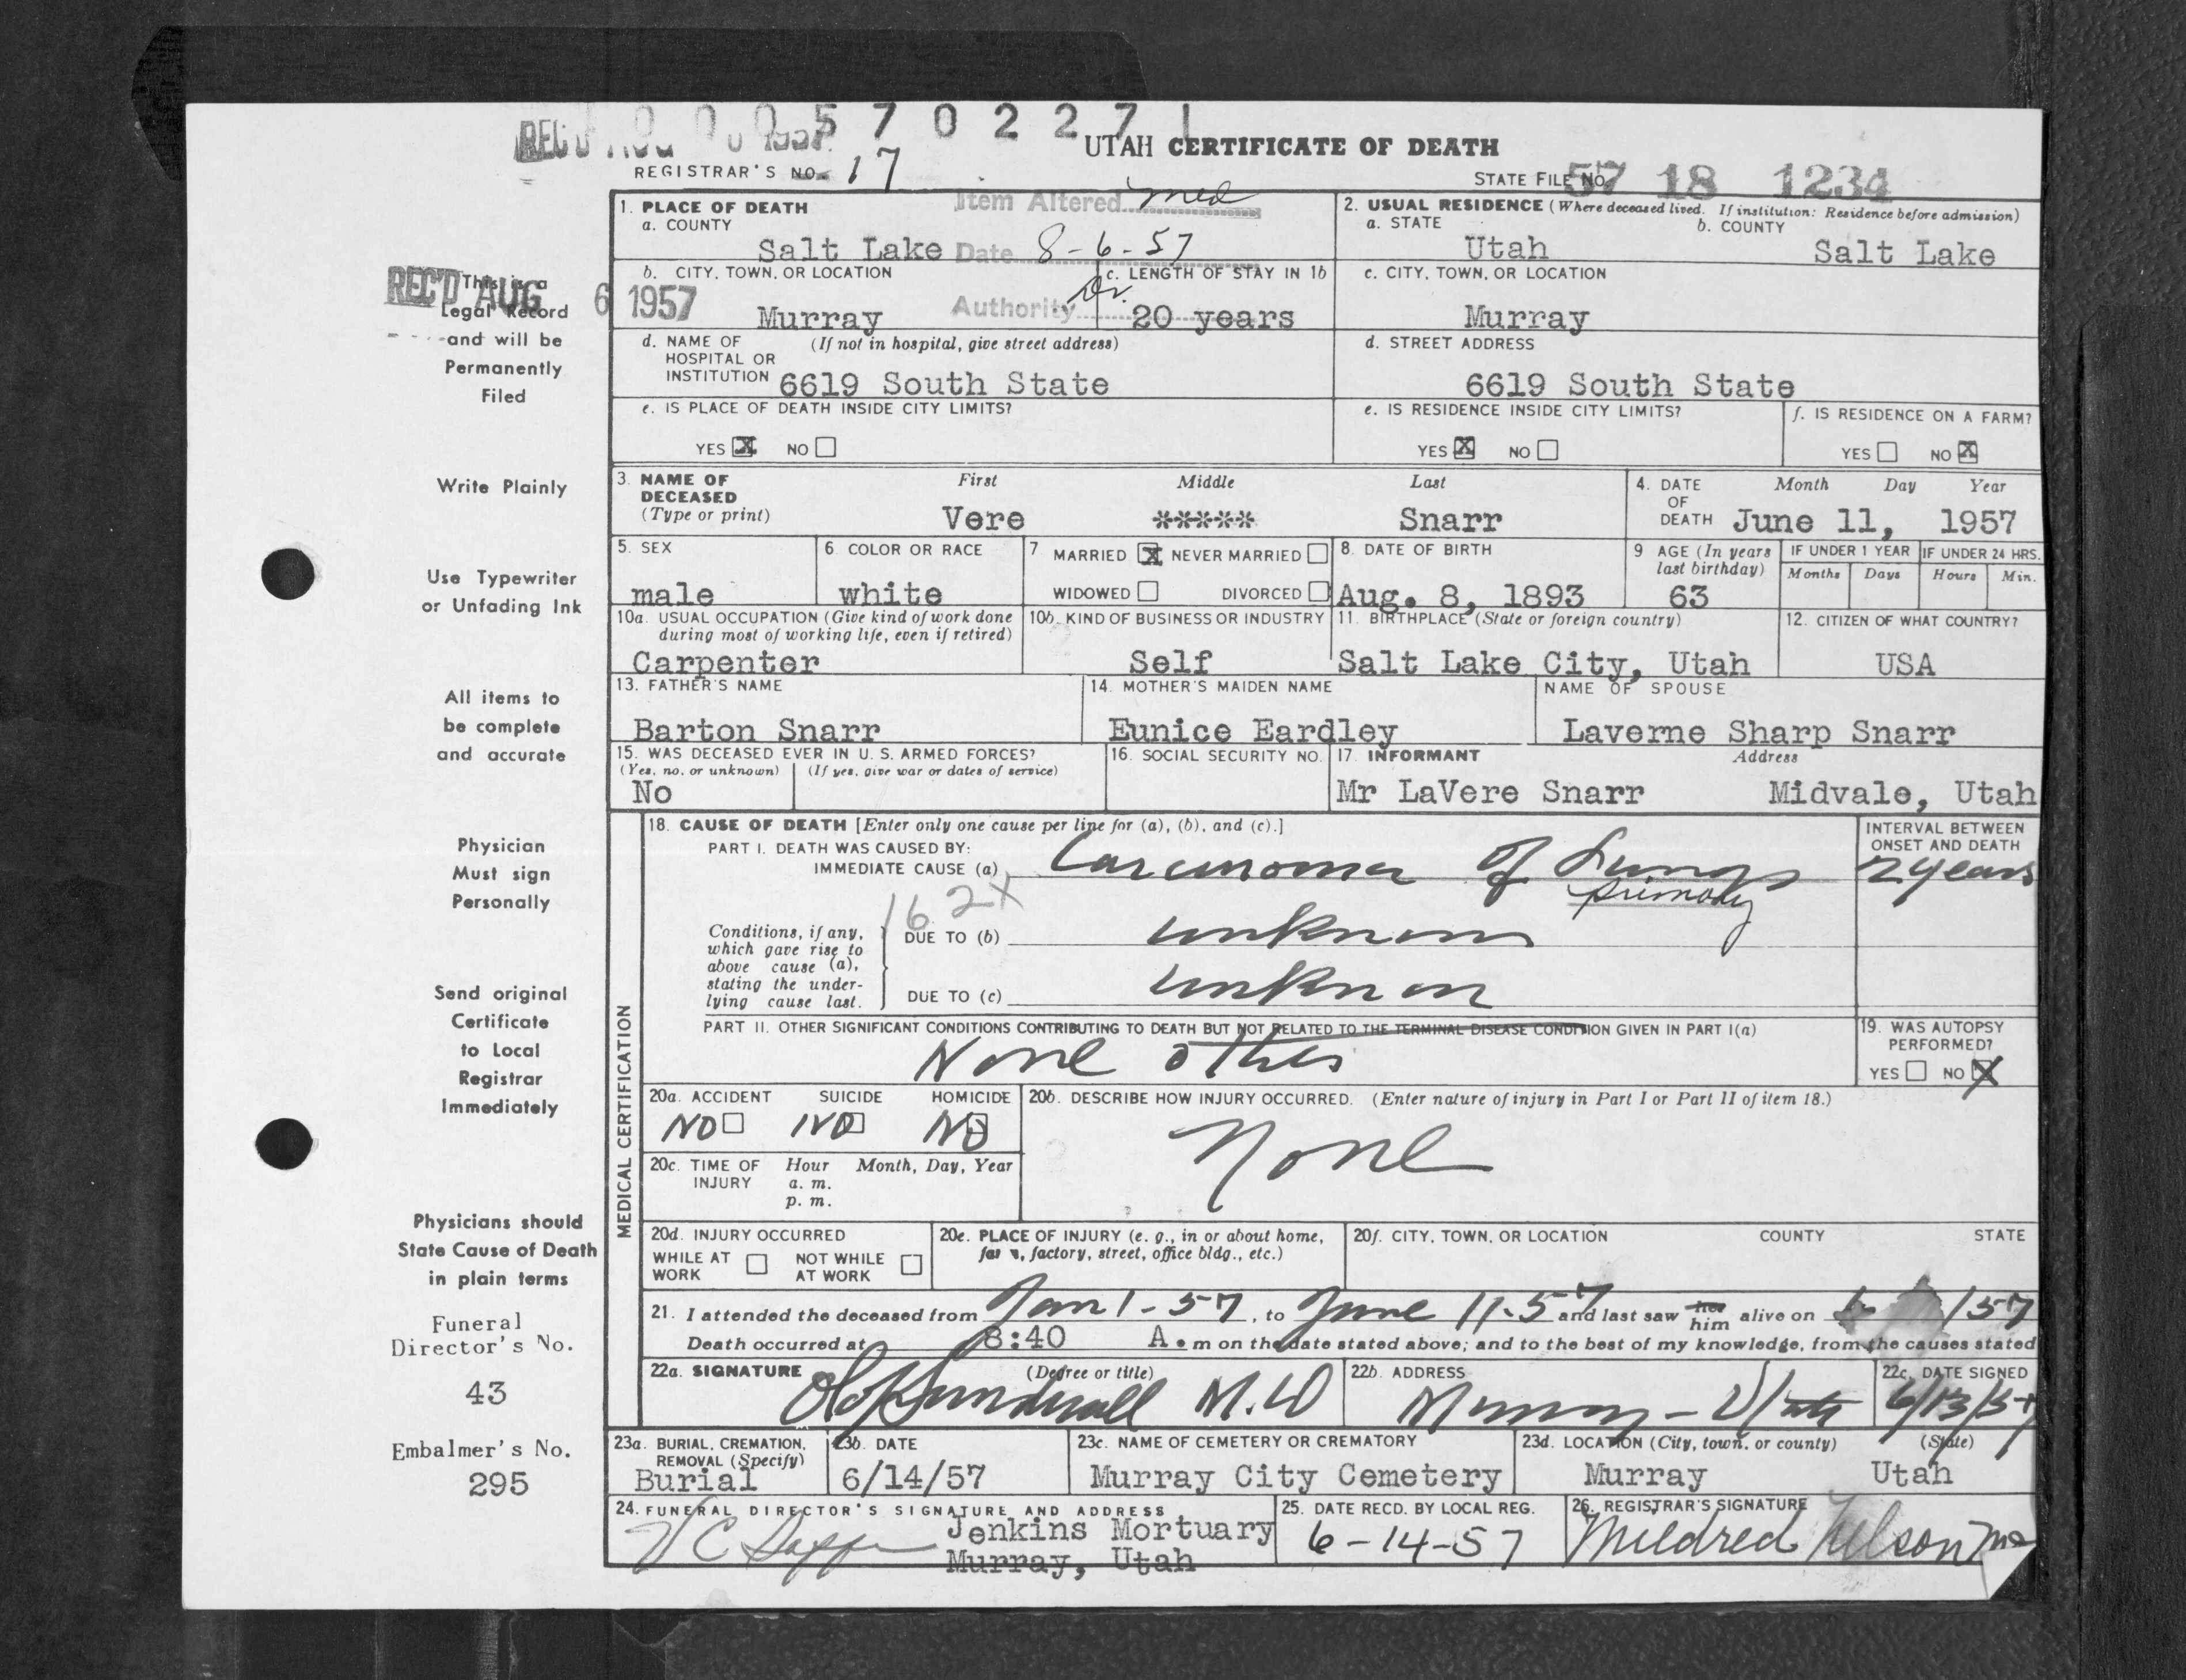 0 0 0 5 7 0 2 2 7 1
REC'D AUG
UTAH CERTIFICATE OF DEATH
REGISTRAR'S NO. 17
STATE FILE NO. 57 18 1234
Item Altered Med
Date 8-6-57
Authority Dr.
REC'D AUG 6 1957
1. PLACE OF DEATH
a. COUNTY
Salt Lake
2. USUAL RESIDENCE (Where deceased lived. If institution: Residence before admission)
a. STATE b. COUNTY
Utah Salt Lake
b. CITY, TOWN, OR LOCATION c. LENGTH OF STAY IN 1b
Murray 20 years
c. CITY, TOWN, OR LOCATION
Murray
d. NAME OF (If not in hospital, give street address)
HOSPITAL OR
INSTITUTION 6619 South State
d. STREET ADDRESS
6619 South State
e. IS PLACE OF DEATH INSIDE CITY LIMITS?
YES X NO
e. IS RESIDENCE INSIDE CITY LIMITS?
YES X NO
f. IS RESIDENCE ON A FARM?
YES NO X
3. NAME OF DECEASED (Type or print) First Middle Last
Vere ***** Snarr
4. DATE OF DEATH Month Day Year
June 11, 1957
5. SEX
male
6 COLOR OR RACE
white
7 MARRIED X NEVER MARRIED
WIDOWED DIVORCED
8. DATE OF BIRTH
Aug. 8, 1893
9 AGE (In years last birthday)
63
IF UNDER 1 YEAR IF UNDER 24 HRS.
Months Days Hours Min.
10a. USUAL OCCUPATION (Give kind of work done
during most of working life, even if retired)
Carpenter
10b. KIND OF BUSINESS OR INDUSTRY
Self
11. BIRTHPLACE (State or foreign country)
Salt Lake City, Utah
12. CITIZEN OF WHAT COUNTRY?
USA
13. FATHER'S NAME
Barton Snarr
14. MOTHER'S MAIDEN NAME
Eunice Eardley
NAME OF SPOUSE
Laverne Sharp Snarr
15. WAS DECEASED EVER IN U. S. ARMED FORCES?
(Yes, no, or unknown) (If yes, give war or dates of service)
No
16. SOCIAL SECURITY NO.
17. INFORMANT Address
Mr LaVere Snarr Midvale, Utah
MEDICAL CERTIFICATION
18. CAUSE OF DEATH [Enter only one cause per line for (a), (b), and (c).]
INTERVAL BETWEEN
ONSET AND DEATH
PART I. DEATH WAS CAUSED BY:
IMMEDIATE CAUSE (a) Carcinoma of Lungs 2 years
primary
162X
Conditions, if any,
which gave rise to
above cause (a),
stating the under-
lying cause last.
DUE TO (b) unknown
DUE TO (c) unknown
PART II. OTHER SIGNIFICANT CONDITIONS CONTRIBUTING TO DEATH BUT NOT RELATED TO THE TERMINAL DISEASE CONDITION GIVEN IN PART I(a)
None other
19. WAS AUTOPSY
PERFORMED?
YES NO X
20a. ACCIDENT SUICIDE HOMICIDE
NO NO NO
20b. DESCRIBE HOW INJURY OCCURRED. (Enter nature of injury in Part I or Part II of item 18.)
None
20c. TIME OF INJURY Hour Month, Day, Year
a. m.
p. m.
20d. INJURY OCCURRED
WHILE AT WORK NOT WHILE AT WORK
20e. PLACE OF INJURY (e. g., in or about home,
farm, factory, street, office bldg., etc.)
20f. CITY, TOWN, OR LOCATION COUNTY STATE
21. I attended the deceased from Jan 1 - 57, to June 11-57 and last saw her him alive on 6 /57
Death occurred at 8:40 A.m on the date stated above; and to the best of my knowledge, from the causes stated
22a. SIGNATURE (Degree or title)
Sundwall M.D
22b. ADDRESS
Murray - Utah
22c. DATE SIGNED
6/13/57
23a. BURIAL, CREMATION,
REMOVAL (Specify)
Burial
23b. DATE
6/14/57
23c. NAME OF CEMETERY OR CREMATORY
Murray City Cemetery
23d. LOCATION (City, town, or county) (State)
Murray Utah
24. FUNERAL DIRECTOR'S SIGNATURE AND ADDRESS
Jenkins Mortuary
Murray, Utah
25. DATE RECD. BY LOCAL REG.
6-14-57
26. REGISTRAR'S SIGNATURE
Mildred Nelson
This is a
Legal Record
and will be
Permanently
Filed
Write Plainly
Use Typewriter
or Unfading Ink
All items to
be complete
and accurate
Physician
Must sign
Personally
Send original
Certificate
to Local
Registrar
Immediately
Physicians should
State Cause of Death
in plain terms
Funeral
Director's No.
43
Embalmer's No.
295